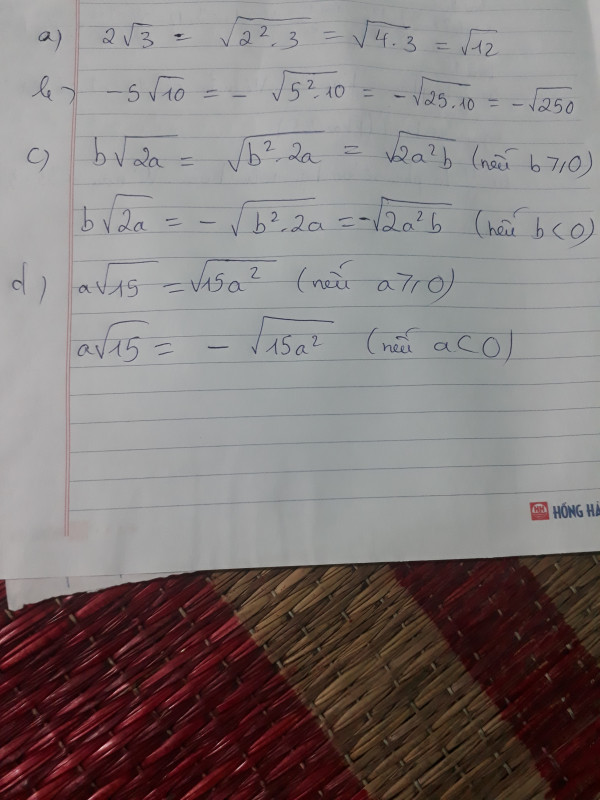 a) 2√3 = √(2².3) = √(4.3) = √12
b) -5√10 = - √(5².10) = -√(25.10) = -√250
c) b√(2a) = √(b².2a) = √(2a²b) (nếu b ≥ 0)
b√(2a) = -√(b².2a) = -√(2a²b) (nếu b < 0)
d) a√15 = √(15a²) (nếu a ≥ 0)
a√15 = - √(15a²) (nếu a < 0)
HH HỒNG HÀ